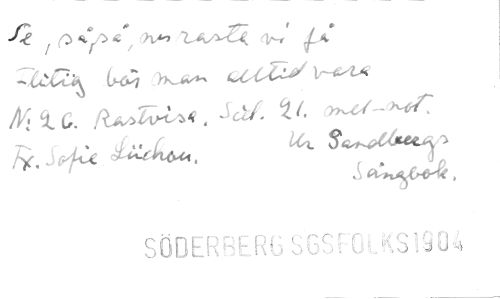 Se, så,så, nu rasta vi få
Flitig bör man alltid vara
N: 26. Rastvisa. Sid. 21. mel-not.
Ur Sandbergs
Ex. Sofie Lüchou.
Sångbok.
SÖDERBERG SGSFOLKS1904